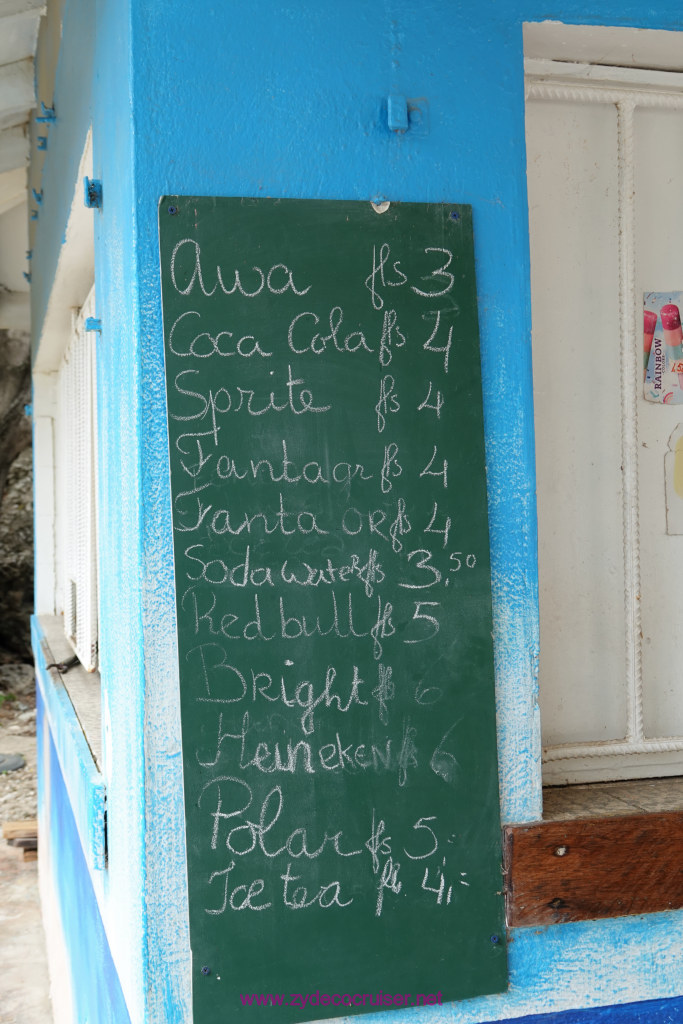 Awa fls 3
Coca Cola fls 4
Sprite fls 4
Fanta gr fls 4
Fanta OR fls 4
Soda water fls 3.50
Red bull fls 5
Bright fls 6
Heineken fls 6
Polar fls 5,-
Ice tea fls 4,-
RAINBOW
www.zydecocruiser.net